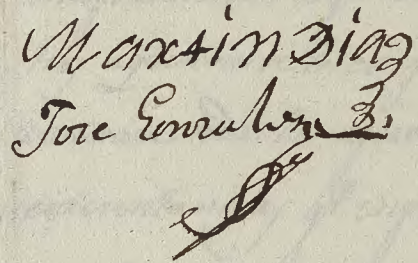 Martin Diaz
Jose Gonzalez